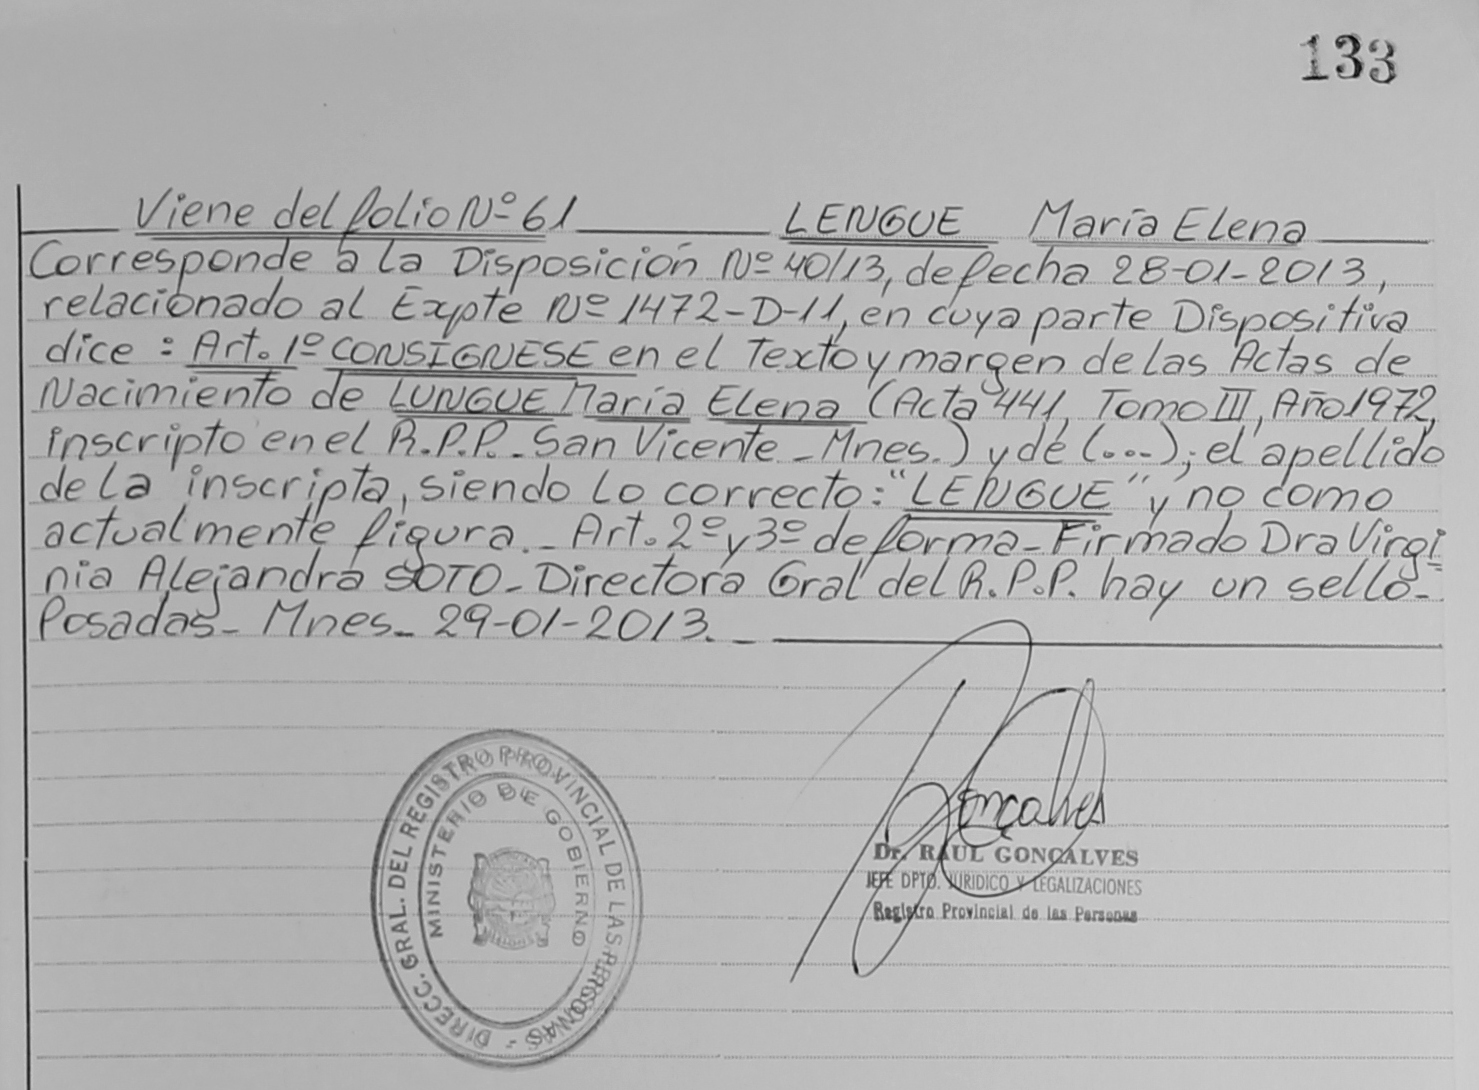 133
Viene del folio Nº 61 LENGUE María Elena
Corresponde a la Disposición Nº 40/13, de fecha 28-01-2013,
relacionado al Expte Nº 1472-D-11, en cuya parte Dispositiva
dice: Art. 1º CONSÍGNESE en el Texto y margen de las Actas de
Nacimiento de LUNGUE María Elena (Acta 441, Tomo III, Año 1972,
inscripto en el R.P.P. - San Vicente - Mnes.) y de (...); el apellido
de la inscripta, siendo lo correcto: "LENGUE" y no como
actualmente figura. - Art. 2º y 3º de forma - Firmado Dra Virgi
nia Alejandra SOTO - Directora Gral del R.P.P. hay un sello -
Posadas - Mnes - 29-01-2013. -
DIRECC. GRAL. DEL REGISTRO PROVINCIAL DE LAS PERSONAS -
MINISTERIO DE GOBIERNO
MISIONES
Gonçalves
Dr. RAUL GONÇALVES
JEFE DPTO. JURIDICO Y LEGALIZACIONES
Registro Provincial de las Personas